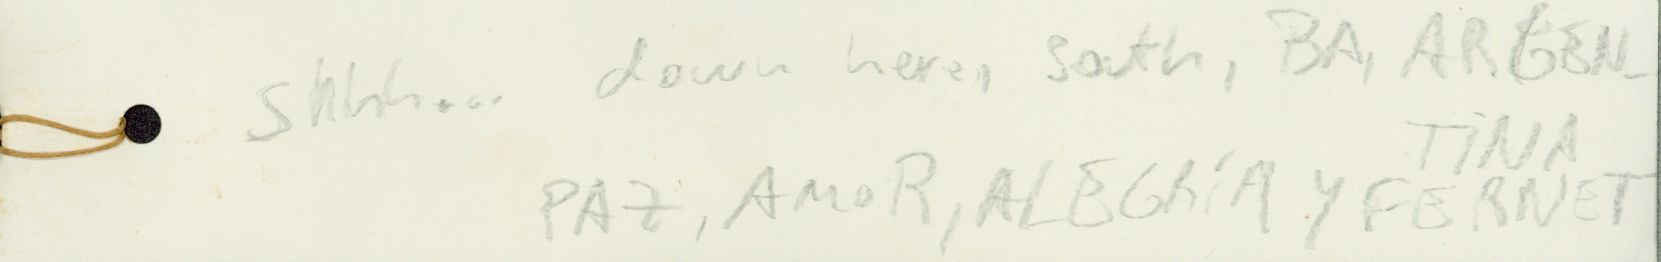 Shhhh... down here, south, BA, ARGEN-
TINA
PAZ, AMOR, ALEGRíA Y FERNET